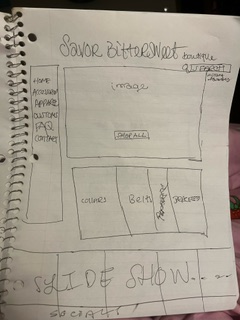 Savor BitterSweet boutique
SEARCH
HOME
ACCESSORIES
APPAREL
CUSTOMS
FAQ
CONTACT
image
SHOP ALL
COLLARS
BELTS
SLIDE SHOW - - -
SOCIALS